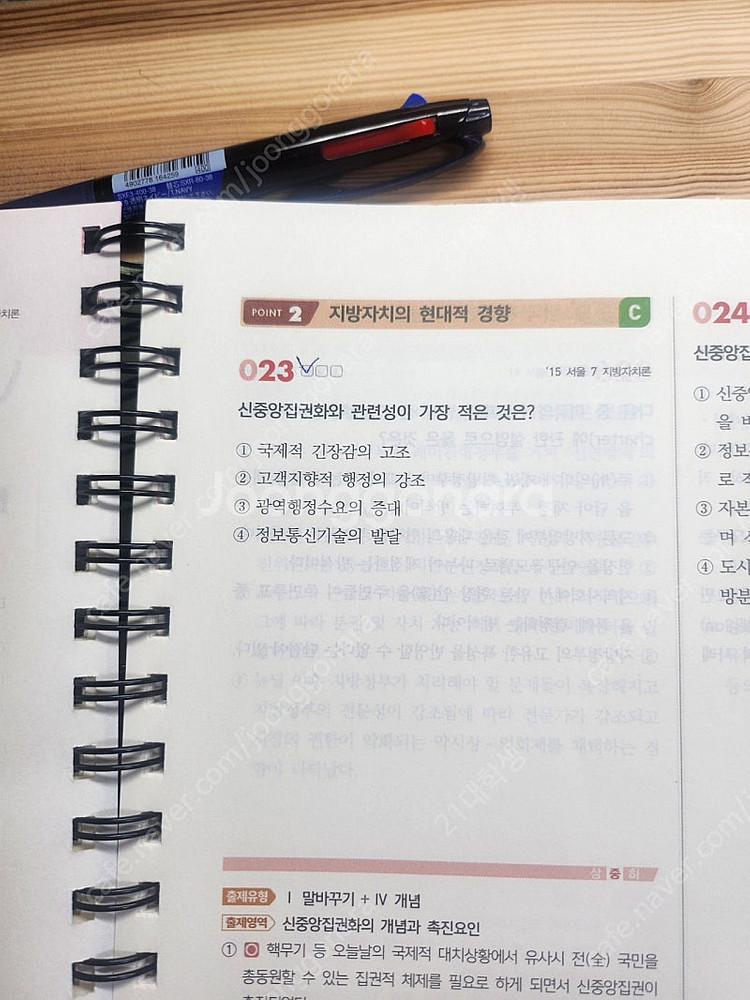 4902778 164259
SXE3-400-38
替芯SXR-80-38
치론
POINT 2 지방자치의 현대적 경향 C
023
'15 서울 7 지방자치론
신중앙집권화와 관련성이 가장 적은 것은?
① 국제적 긴장감의 고조
② 고객지향적 행정의 강조
③ 광역행정수요의 증대
④ 정보통신기술의 발달
상 중 하
출제유형 Ⅰ 말바꾸기 + Ⅳ 개념
출제영역 신중앙집권화의 개념과 촉진요인
① 핵무기 등 오늘날의 국제적 대치상황에서 유사시 전(全) 국민을
총동원할 수 있는 집권적 체제를 필요로 하게 되면서 신중앙집권이
024
신중앙집
① 신중
을
② 정보
로
③ 자본
며
④ 도시
방분
Joonggonara
cafe.naver.com/joonggonara
21대학생